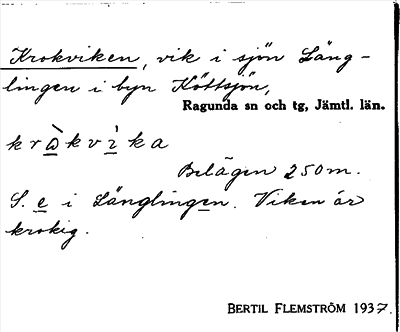 Krokviken, vik i sjön Läng-
lingen i byn Köttsjön,
Ragunda sn och tg, Jämtl. län.
krὼkvı̀ka
Belägen 250m.
S. e i Länglingen. Viken är
krokig.
BERTIL FLEMSTRÖM 1937.